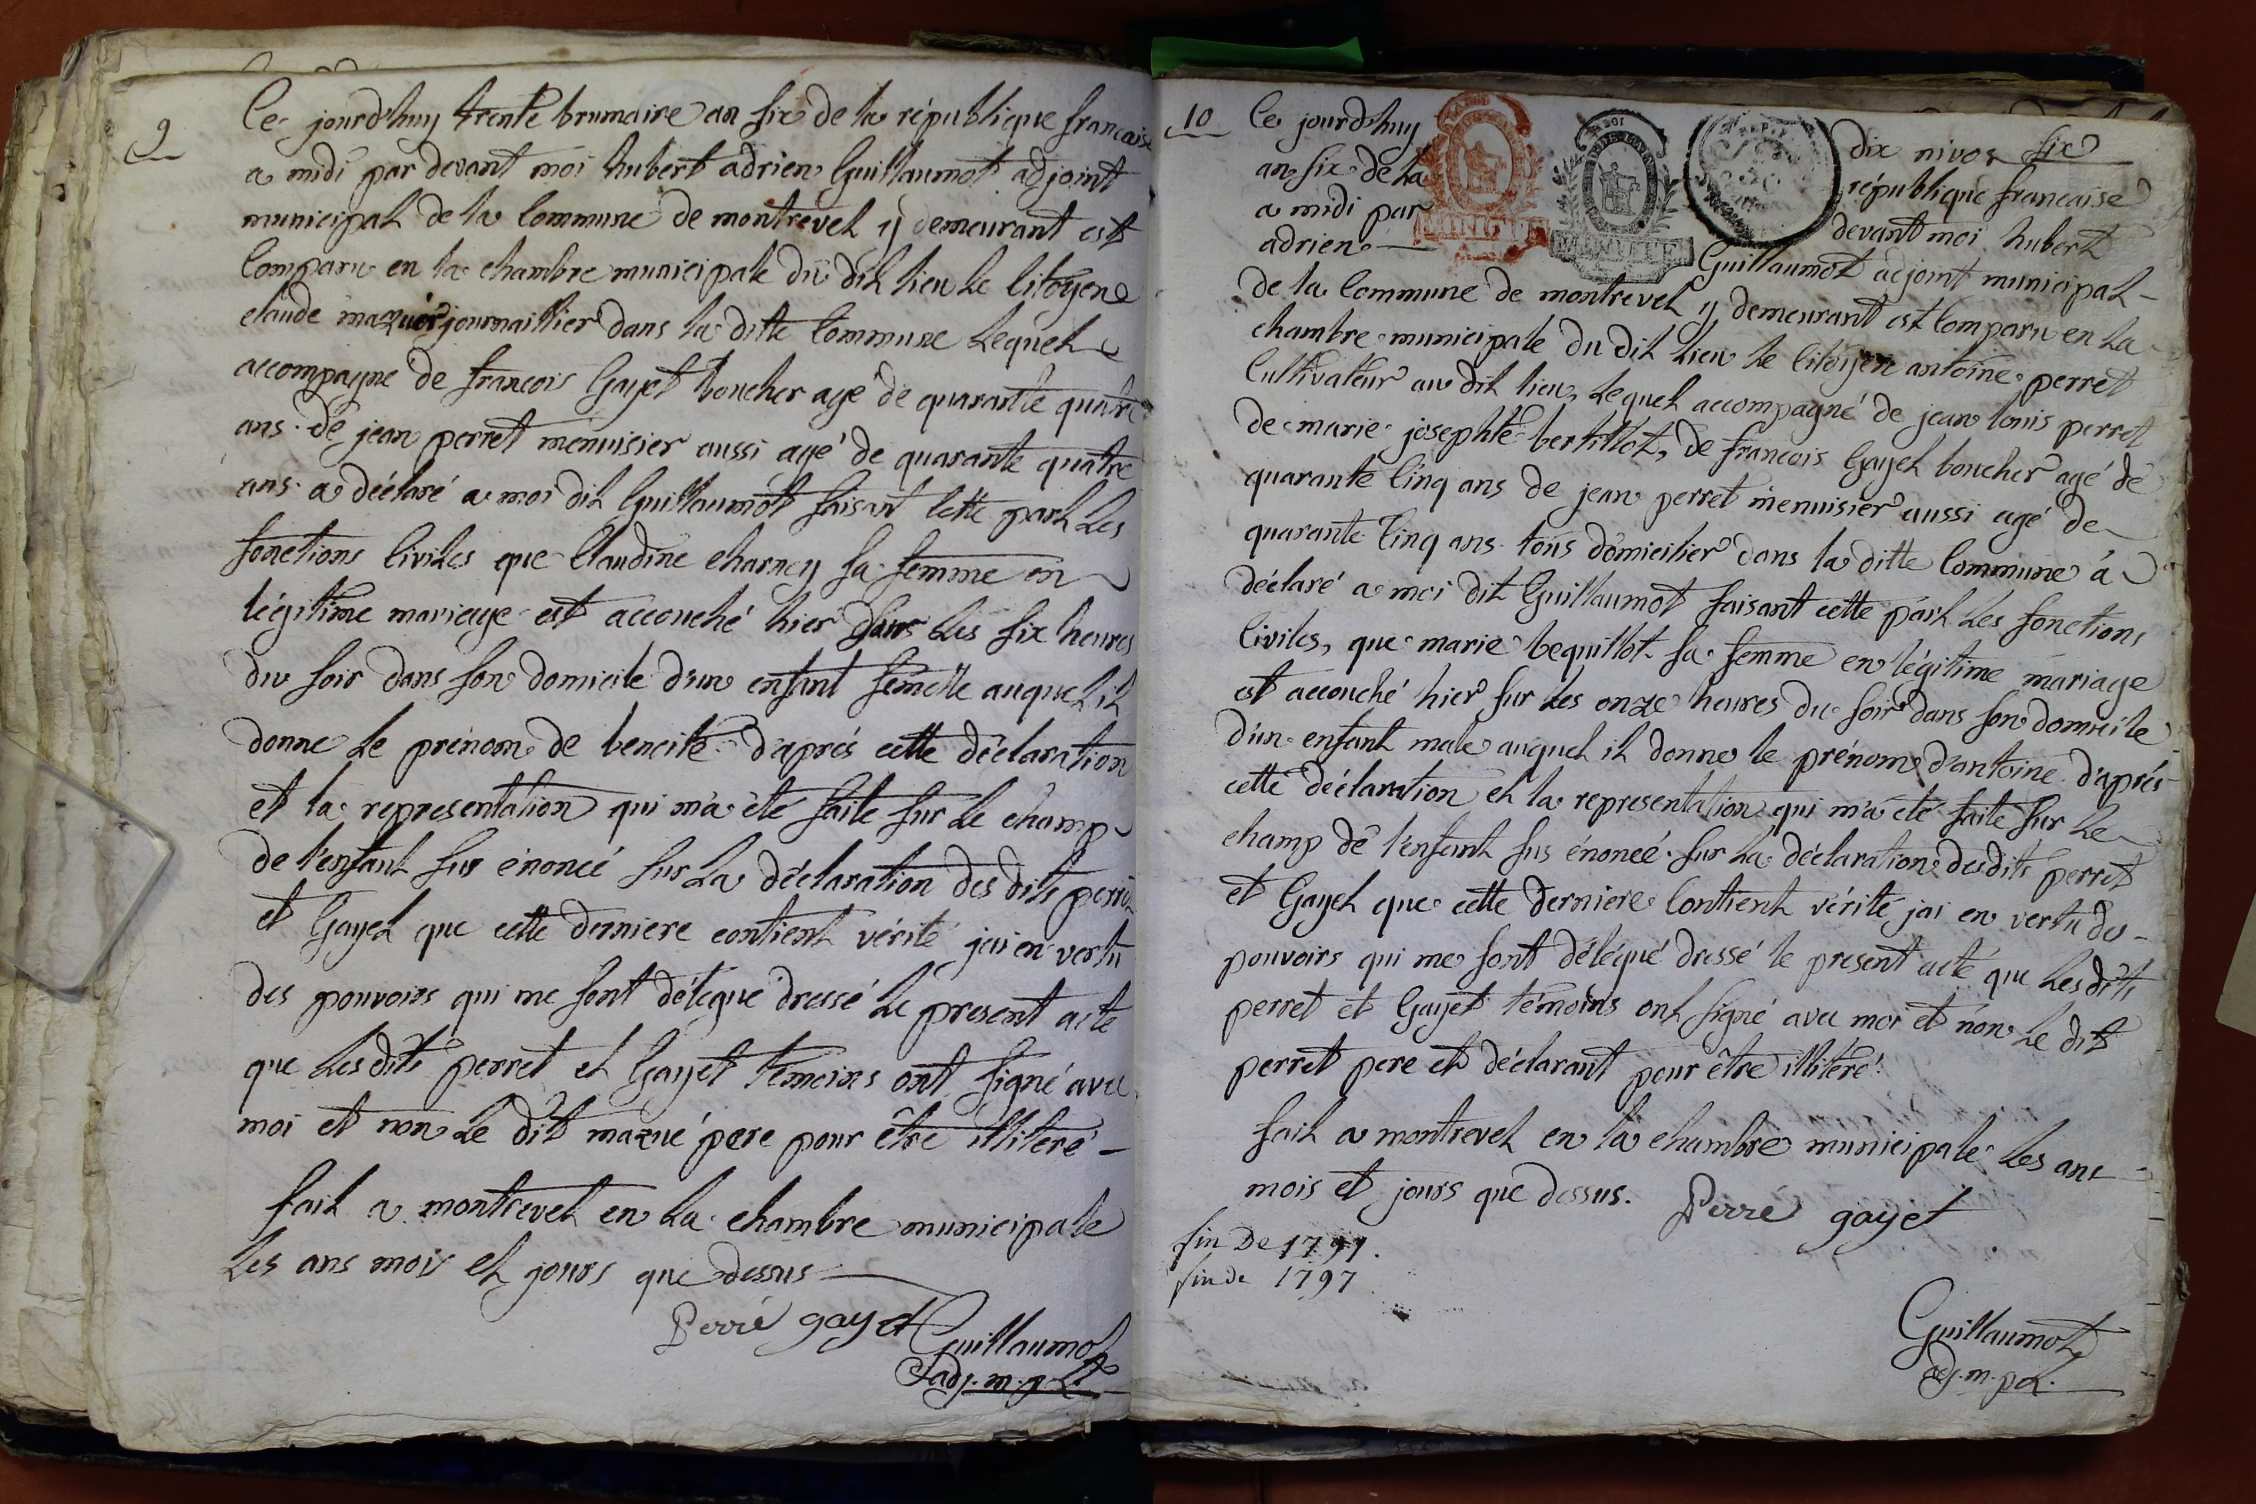 9
Ce jourd'huy trente brumaire an six de la république francaise
a midi par devant moi hubert adrien Guillaumot adjoint
municipal de la Commune de montrevel y demeurant est
Comparu en la chambre municipale du dit lieu le Citoyen
claude mazuér journaillier dans la ditte Commune lequel
accompagne de francois Gayet boucher agé de quarante quatre
ans. de jean perret menuisier aussi agé de quarante quatre
ans. a déclaré a moi dit Guillaumot faisant cette part les
fonctions Civiles que Claudine charney sa femme en
légitime mariage est accouché hier sur les six heures
du soir dans son domicile d'un enfant femelle auquel il
donne le prénom de bencite d'aprés cette déclaration
et la representation qui m'a été faite sur le champ
de l'enfant sus énoncé sur la déclaration des dits perret
et Gayet que cette derniere contient vérité j'ai en vertu
des pouvoirs qui me sont délégué dressé le present acte
que lesdits perret et Gayet témoins ont signé avec
moi et non le dit mazué pere pour être illiteré -
fait a montrevel en la chambre municipale
les ans mois et jours que dessus
Perré gayet Guillaumot
adj. m. p l.
10
Ce jourd'huy dix nivos six
an six de la république francaise
a midi par devant moi hubert
adrien Guillaumot adjoint municipal
de la Commune de montrevel y demeurant est Comparu en la
chambre municipale du dit lieu le Citoyen antoine perret
Cultivateur au dit lieu, lequel accompagné de jean louis perret
de marie josephte bertillot, de francois Gayet boucher agé de
quarante Cinq ans de jean perret menuisier aussi agé de
quarante Cinq ans tous domicilier dans la ditte Commune á
déclaré a moi dit Guillaumot faisant cette part les fonctions
Civiles, que marie bequillot sa femme en légitime mariage
est accouché hier sur les onze heures du soir dans son domicile
d'un enfant male auquel il donne le prénom d'antoine d'aprés
cette déclaration et la representation qui m'a été faite sur le
champ de l'enfant sus énoncé sur la déclaration desdits perret
et Gayet que cette derniere Contient vérité j'ai en vertu des
pouvoirs qui me sont délégué dressé le present acte que lesdits
perret et Gayet témoins ont signé avec moi et non le dit
perret pere et déclarant pour être illiteré.
fait a montrevel en la chambre municipale les ans
mois et jours que dessus. Perré gayet
fin De 1797.
fin de 1797
Guillaumot
adj. m. pal.